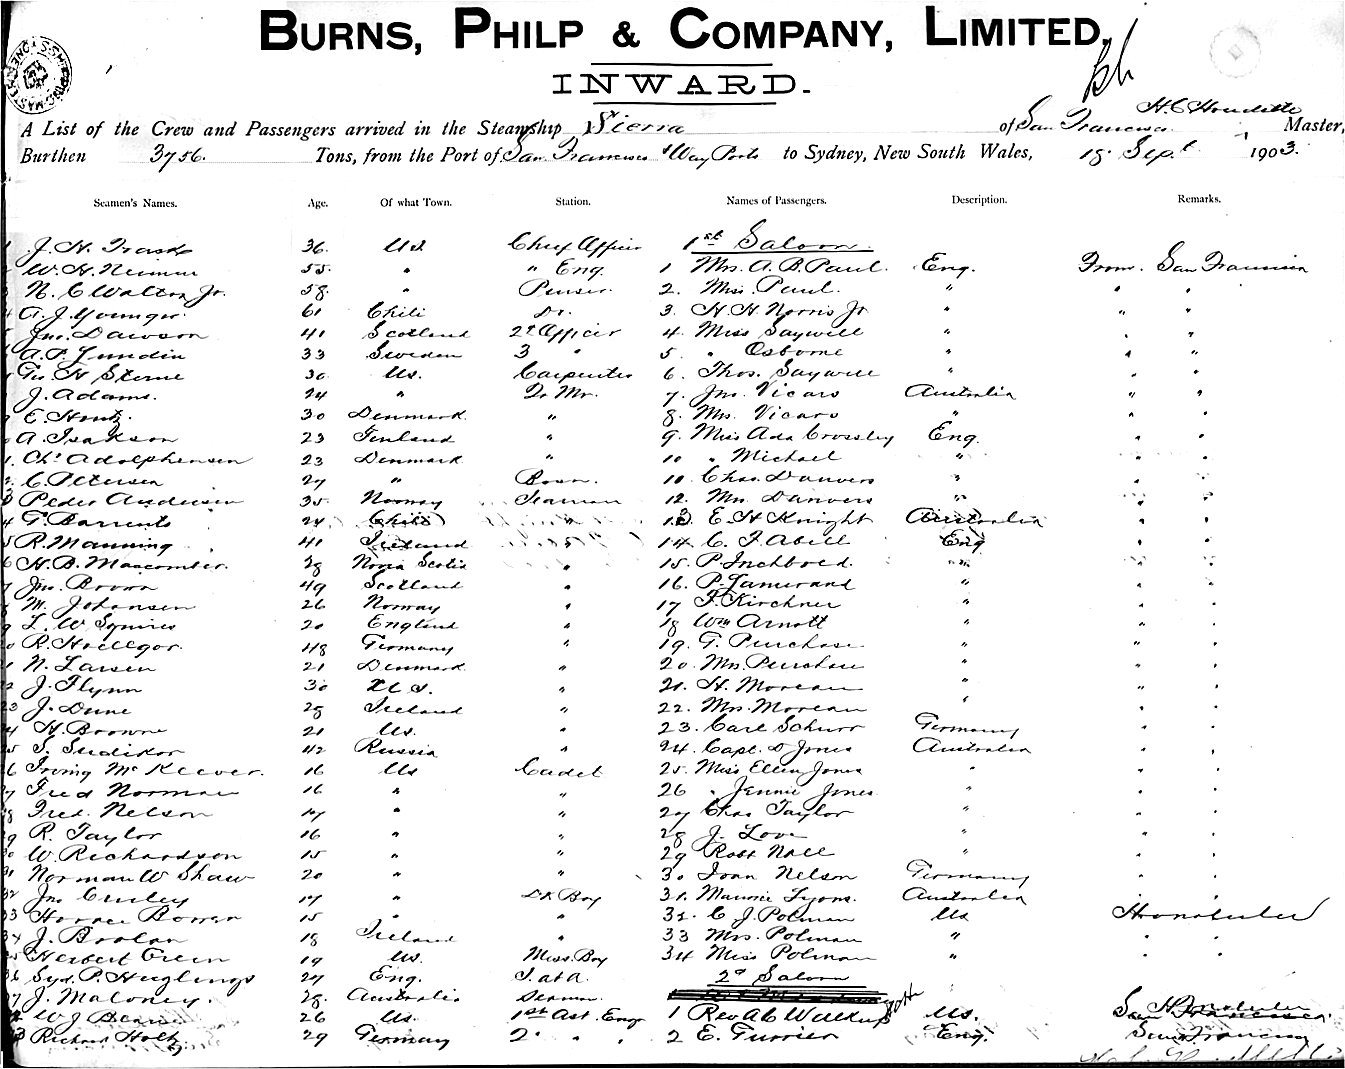 BURNS, PHILP & COMPANY, LIMITED.
INWARD.
H. C. Houdette
A List of the Crew and Passengers arrived in the Steamship Sierra of San Francisco Master,
Burthen 3756. Tons, from the Port of San Francisco & Way Ports to Sydney, New South Wales, 18 Sept 1903.
Seamen's Names. Age. Of what Town. Station. Names of Passengers. Description. Remarks.
J. H. Trask 36 US Chief Officer 1st Saloon.
W. H. Neumann 55 " " Eng 1 Mrs. A. B. Paul. Eng. From San Francisco
N. C. Walton Jr. 58 " Purser 2. Miss Paul " " "
A. J. Younger 61 Chili Dr. 3. H H Norris Jr " " "
Jno. Dawson 41 Scotland 2d Officer 4. Miss Saywell " " "
A. P. Lundin 33 Sweden 3 " 5. " Osborne " " "
Geo. H Sterne 30 US. Carpenter 6. Thos. Saywell " " "
J. Adams. 24 " Q. Mr. 7. Jno. Vicars Australia " "
E. Hentz. 30 Denmark " 8. Mrs. Vicars " " "
A. Isakson 23 Finland " 9. Miss Ada Crossley Eng. " "
Chs Adolphensen 23 Denmark " 10 " Michael " " "
C. Petersen 27 " Bosn. 10 Chas. Danvers " " "
Peder Andersen 35 Norway Seaman 12. Mrs Danvers " " "
G. Barrento 24 Chili " 13. E. H Knight Australia " "
R. Manning 41 Ireland " 14. C. F. Abell Eng " "
H. B. Macomber. 28 Nova Scotia " 15. P. Inchbold. " " "
Jno. Brown 49 Scotland " 16. P. Lamerand " " "
M. Johansen 26 Norway " 17 F. Kirchner " " "
L. W Squires 20 England " 18 Wm Arnott " " "
R. Hoellgor 48 Germany " 19. G. Purchase. " " "
N. Larsen 21 Denmark " 20. Mrs. Purchase " " "
J. Flynn 30 U.S. " 21. H. Moreau " " "
J. Dune 28 Ireland " 22. Mrs. Moreau " " "
H. Browne 21 US. " 23. Carl Schurr Germany " "
S. Sudikor 42 Russia " 24. Capt. D Jones Australia " "
Irving McKeever. 16 US Cadet 25. Miss Ellen Jones " " "
Fred Norman 16 " " 26 " Jennie Jones " " "
Fred. Nelson 17 " " 27 Chas Taylor " " "
R. Taylor 16 " " 28 J. Love " " "
W. Richardson 15 " " 29 Robt Nall " " "
Norman W Shaw 20 " " 30 Ivan Nelson Germany " "
Jno Curley 17 " Dk Boy 31. Maurice Lyons. Australia " "
Horace Bowen 15 " " 32. C J. Polman US Honolulu
J. Boolan 18 Ireland " 33 Mrs. Polman " " "
Herbert Green 19 US. Mess. Boy 34 Miss Polman " " "
Syd. P. Huglings 27 Eng. 2d Saloon
J. Maloney. 28. Australia Seaman.
W J 26 US. 1st Ast. Engr 1 Rev A C Walkup US.
Richard Holtz 29 Germany 2 " " 2 E. Gurrier Eng. San Francisco